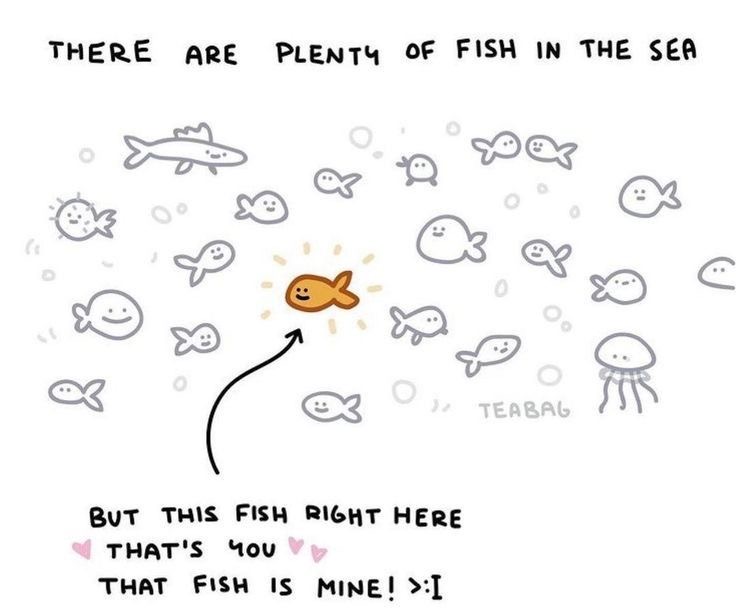 THERE ARE PLENTY OF FISH IN THE SEA
TEABAG
BUT THIS FISH RIGHT HERE
THAT'S YOU
THAT FISH IS MINE! >:I